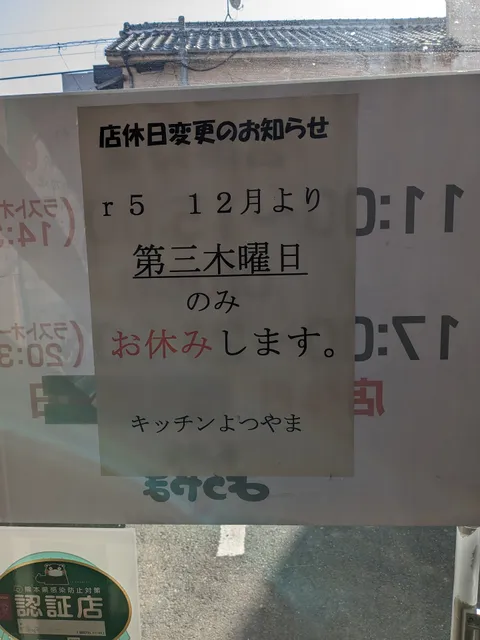 店休日変更のお知らせ
r５　１２月より
第三木曜日
のみ
お休みします。
キッチンよつやま
11:0
(ラストオー
14:3
17:0
(ラストオー
20:3
店
日
熊本県感染防止対策
認証店